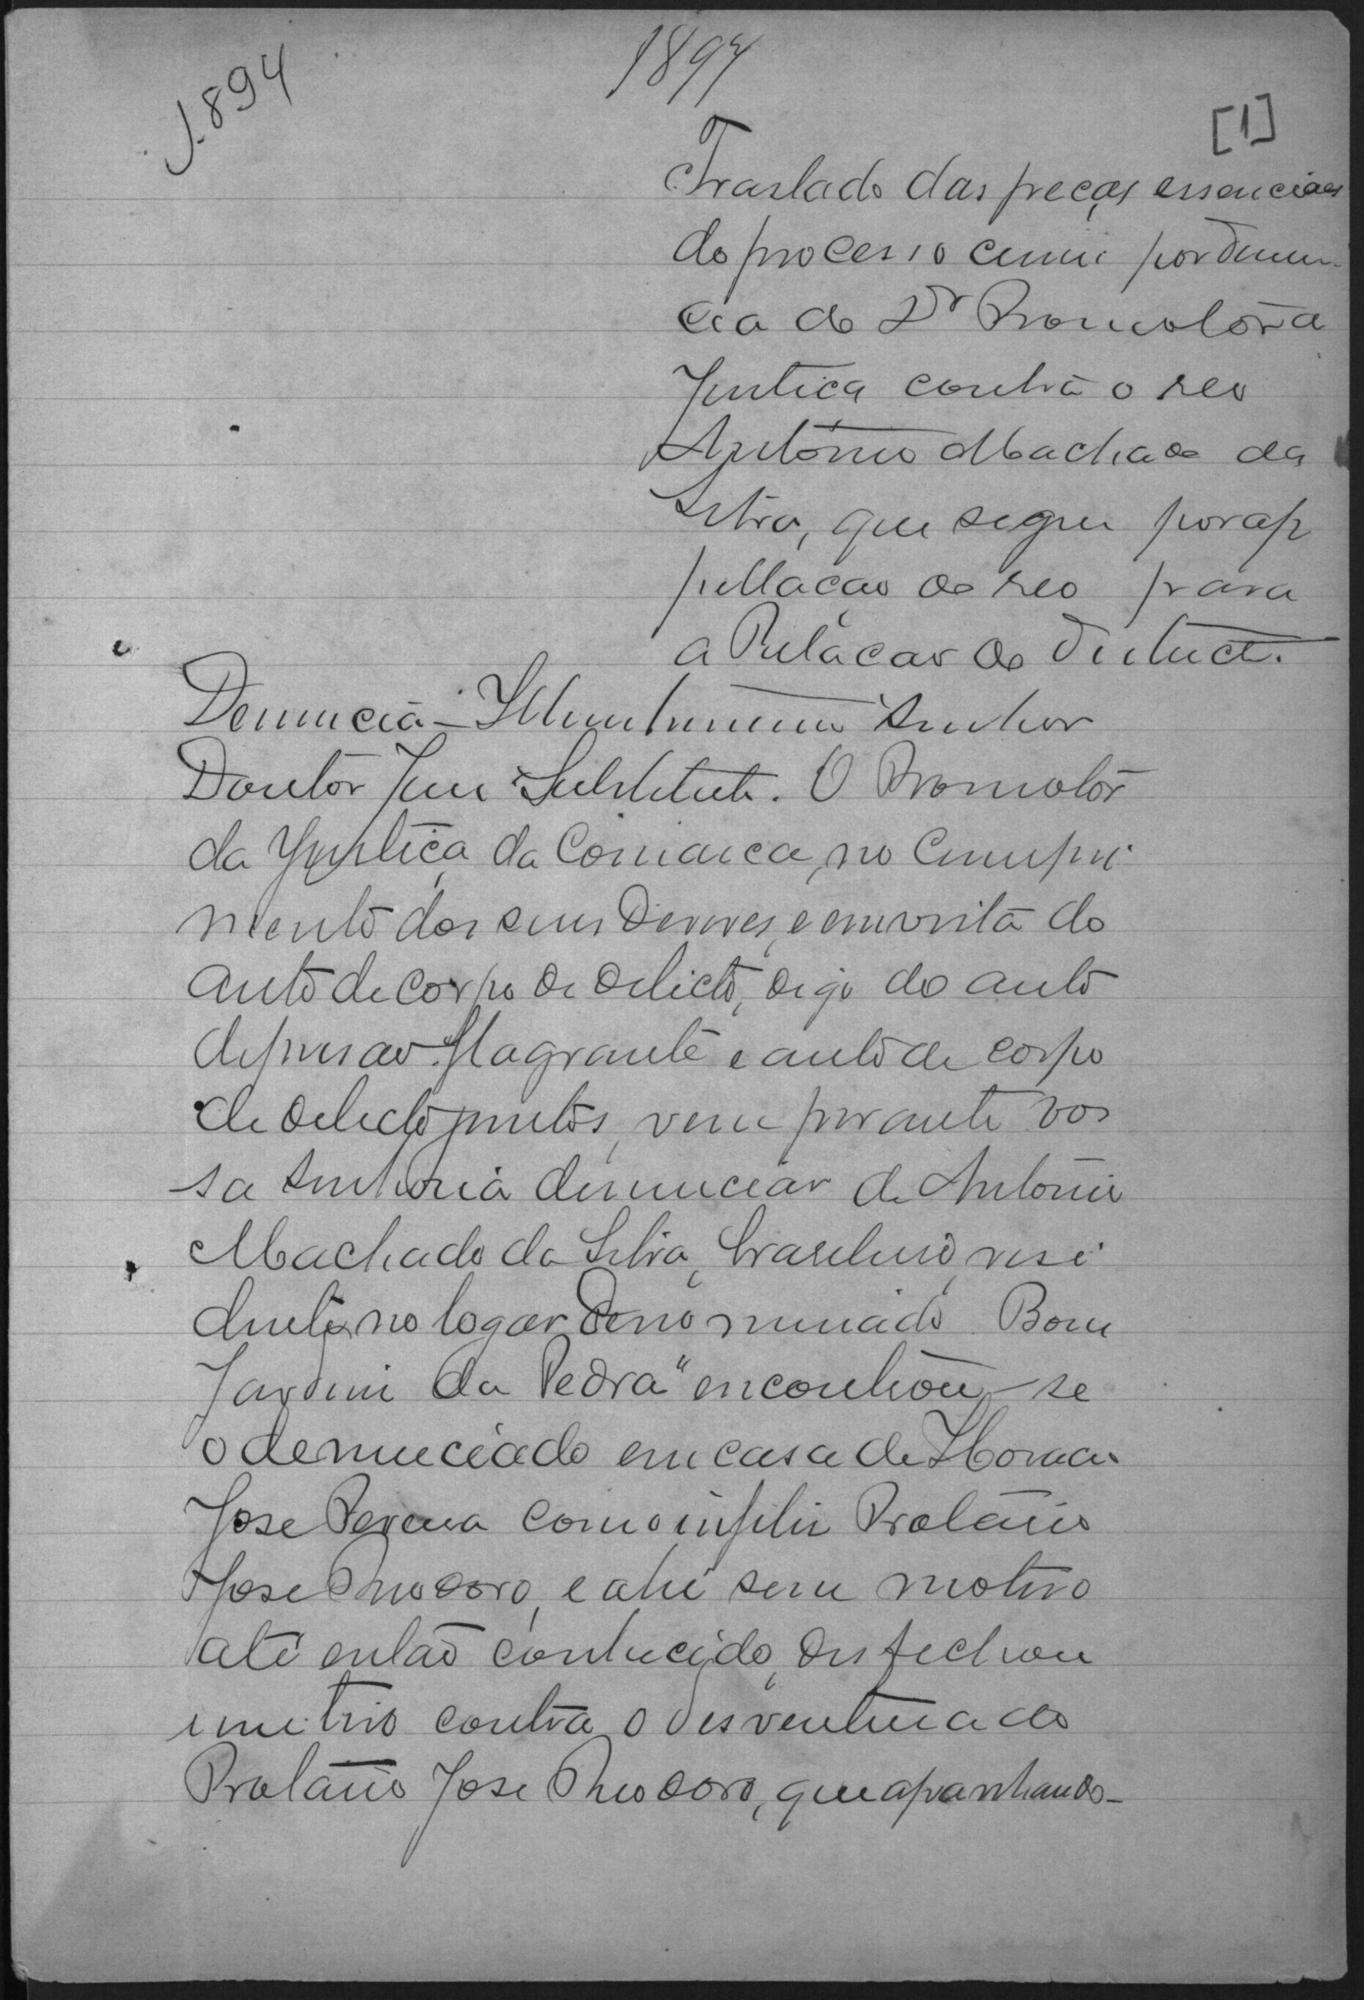 J.894
1894
[1]
Traslado das peças essenciaes
do processo crime por denun-
cia do Dr Promotor da
Justiça contra o reo
Antonio Machado da
Silva, que segue por ap
pellação do reo para
a Relação do Districto.
Denuncia - Illustrissimo Senhor
Doutor Juiz Substituto. O Promotor
da Justiça da Comarca, no cumpri
mento dos seus deveres, e em vista do
auto de corpo de delicto, digo do auto
de prisão flagrante e auto de corpo
de delicto juntos, vem perante vos
sa Senhoria denunciar de Antonio
Machado da Silva, brasileiro, resi
dente no logar denominado Bom
Jardim da Pedra" encontrou-se
o denunciado em casa de
José Pereira com o infeliz Protasio
José Theodoro, e ahi sem motivo
até então conhecido, desfechou
um tiro contra o desventurado
Protasio José Theodoro, que apanhando-